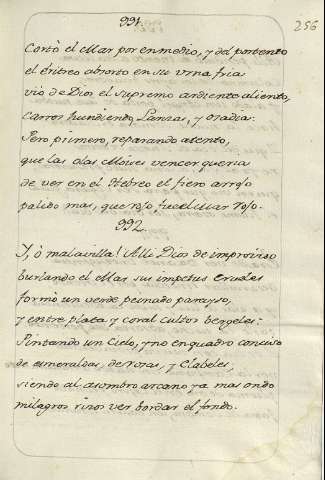 991.
256
Cortò el Mar por enmedio, y del portento
el êritreo absorto en su vrna fria
viò de Dios el supremo ardiente aliento,
carros hundiendo, Lanzas, y osadia:
Pero primero, reparando atento,
que las olas Moises vencer queria
de ver en el Hebreo el fiero arrojo
palido mas, que rojo, fue el mar rojo.
992.
Y, ò maravilla! Alli Dios de improviso
burlando el Mar sus impetus crueles
formò un verde peinado parayso,
y entre plata y coral cultos bergeles:
Pintando un Cielo, y no en quadro conciso
de esmeraldas, de rosas, y Clabeles,
siendo al asombro arcano ya mas ondo
milagros rizos ver bordar el fondo.